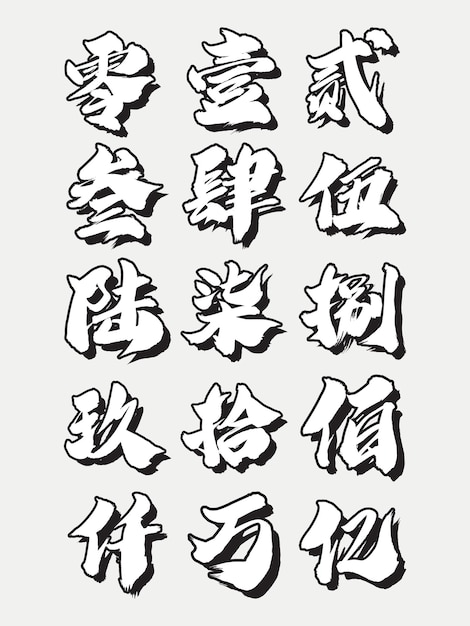 零壹贰
叁肆伍
陆柒捌
玖拾佰
仟万亿